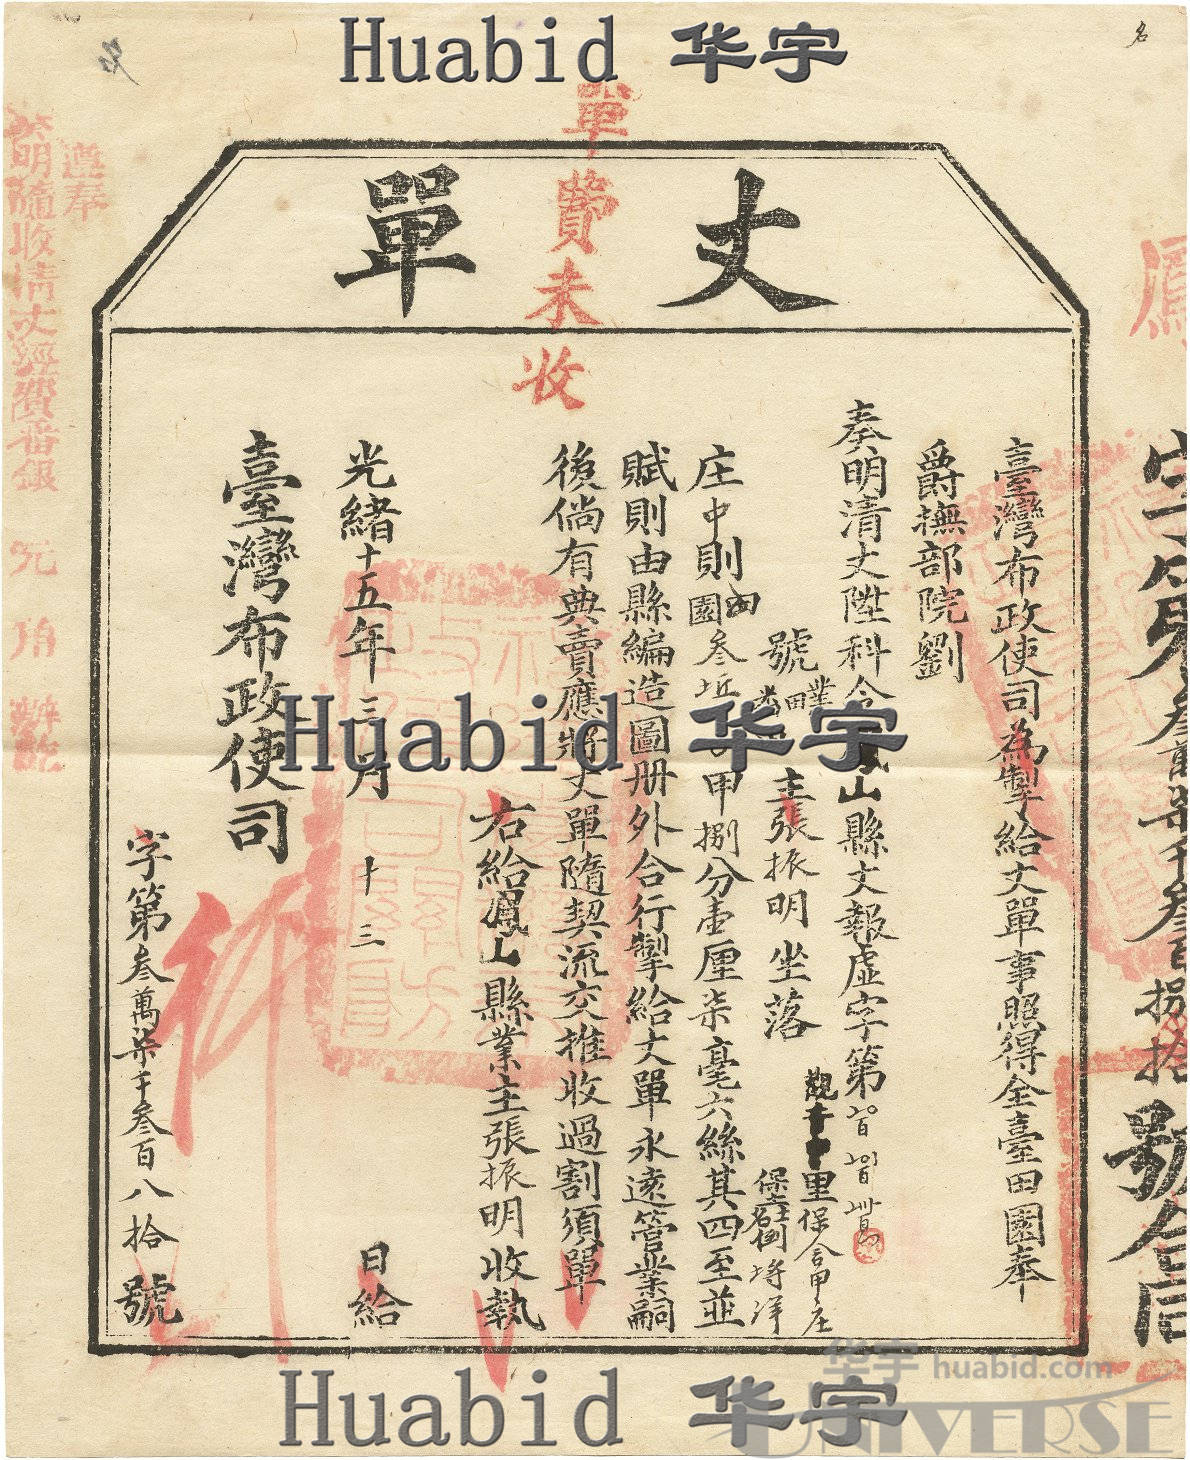 Huabid 华宇
名
丈單
單費未收
臺灣布政使司為掣給丈單事照得全臺田園奉
爵撫部院劉
奏明清丈陞科今 鳳山縣丈報虛字第
號 業 主張振明坐落
觀 里保合甲庄
庄中則園 叁 甲捌分壹厘柒毫六絲其四至並
賦則由縣編造圖册外合行掣給丈單永遠管業嗣
後倘有典賣應將丈單隨契流交推收過割須單
右給鳳山縣業主張振明收執
光緒十五年三月 十三 日給
臺灣布政使司
字第叁萬柒千叁百八拾號
遵奉
箭明隨收清丈經費番銀 元 角
字第 叁萬柒千叁百捌拾號合同
Huabid 华宇
Huabid 华宇
华宇 huabid.com
UNIVERSE